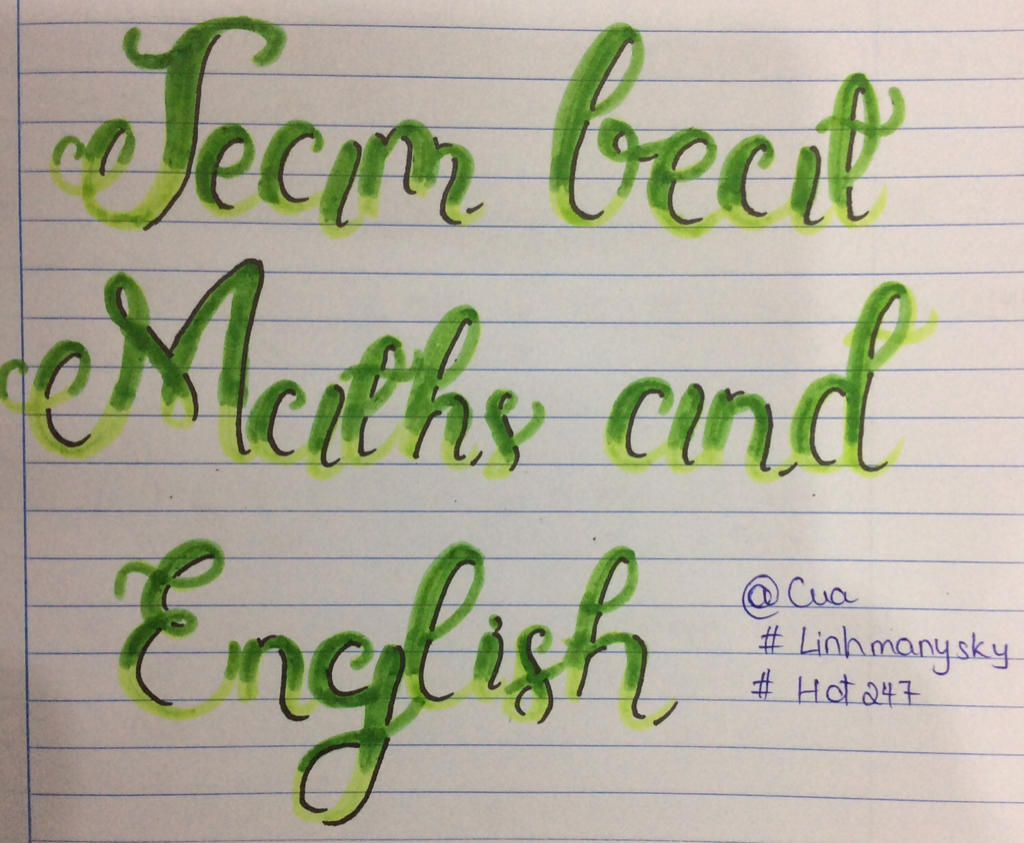 Team beat
Maths and
English
@Cua
# Linhmanysky
# Hot247